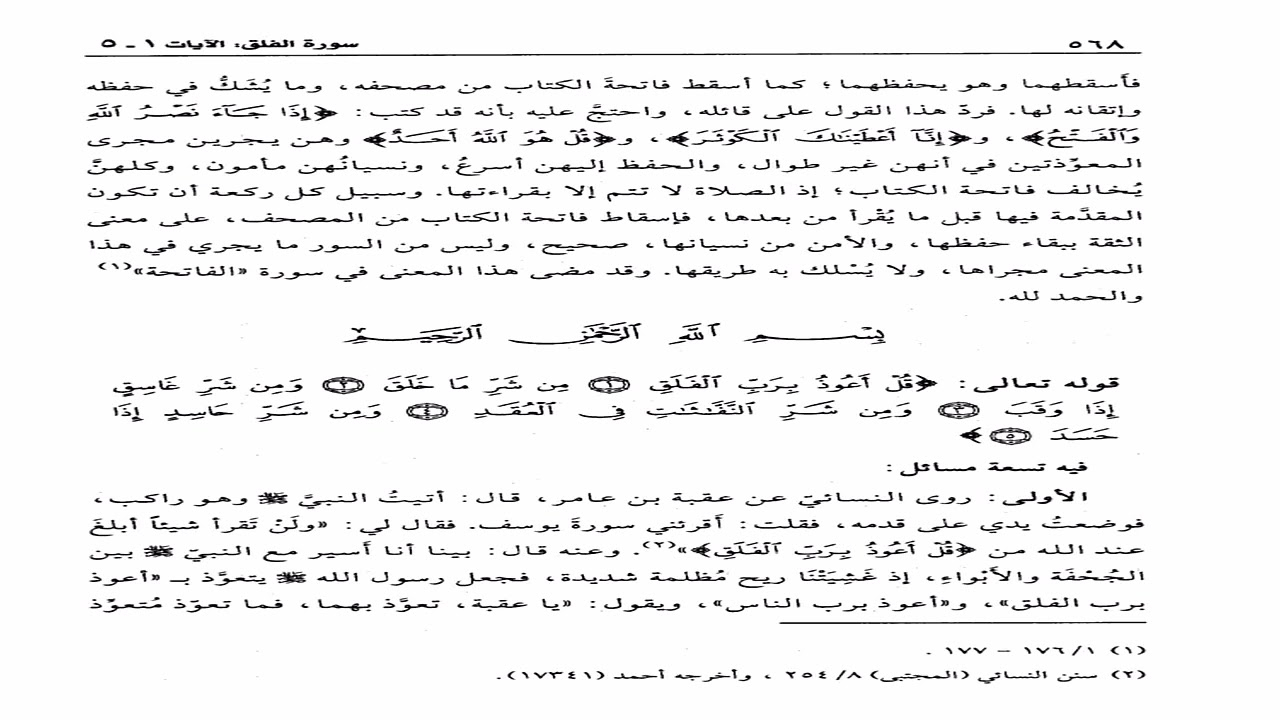 ٥٦٨ سورة الفلق: الآيات ١ - ٥
فأسقطهما وهو يحفظهما؛ كما أسقط فاتحةَ الكتاب من مصحفه، وما يُشَكُّ في حفظه
وإتقانه لها. فردَّ هذا القول على قائله، واحتجَّ عليه بأنه قد كتب: ﴿إِذَا جَآءَ نَصْرُ ٱللَّهِ
وَٱلْفَتْحُ﴾، و﴿إِنَّآ أَعْطَيْنَٰكَ ٱلْكَوْثَرَ﴾، و﴿قُلْ هُوَ ٱللَّهُ أَحَدٌ﴾ وهن يجرين مجرى
المعوِّذتين في أنهن غير طوال، والحفظ إليهن أسرعُ، ونسيانُهن مأمون، وكلهنَّ
يُخالف فاتحة الكتاب؛ إذ الصلاة لا تتم إلا بقراءتها. وسبيل كل ركعة أن تكون
المقدَّمة فيها قبل ما يُقْرأ من بعدها، فإسقاط فاتحة الكتاب من المصحف، على معنى
الثقة ببقاء حفظها، والأمن من نسيانها، صحيح، وليس من السور ما يجري في هذا
المعنى مجراها، ولا يُسْلك به طريقها. وقد مضى هذا المعنى في سورة «الفاتحة»(١)
والحمد لله.
بِسْمِ ٱللَّهِ ٱلرَّحْمَٰنِ ٱلرَّحِيمِ
قوله تعالى: ﴿قُلْ أَعُوذُ بِرَبِّ ٱلْفَلَقِ ۝١ مِن شَرِّ مَا خَلَقَ ۝٢ وَمِن شَرِّ غَاسِقٍ
إِذَا وَقَبَ ۝٣ وَمِن شَرِّ ٱلنَّفَّٰثَٰتِ فِى ٱلْعُقَدِ ۝٤ وَمِن شَرِّ حَاسِدٍ إِذَا
حَسَدَ ۝٥﴾
فيه تسعة مسائل:
الأولى: روى النسائيّ عن عقبة بن عامر، قال: أتيتُ النبيَّ ﷺ وهو راكب،
فوضعتُ يدي على قدمه، فقلت: أَقرئني سورةَ يوسف. فقال لي: «ولَنْ تَقرأ شيئاً أبلغَ
عند الله من ﴿قُلْ أَعُوذُ بِرَبِّ ٱلْفَلَقِ﴾»(٢). وعنه قال: بينا أنا أسير مع النبيّ ﷺ بين
الجُحْفَة والأَبْواءِ، إذ غَشِيَتْنَا ريح مُظلمة شديدة، فجعل رسول الله ﷺ يتعوَّذ بـ «أعوذ
برب الفلق»، و«أعوذ برب الناس»، ويقول: «يا عقبة، تعوَّذ بهما، فما تعوّذ مُتعوِّذ
(١) ١/ ١٧٦ - ١٧٧ .
(٢) سنن النسائي (المجتبى) ٨/ ٢٥٤ ، وأخرجه أحمد (١٧٣٤١).